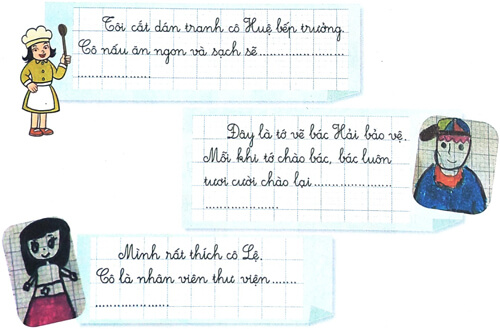 Tôi cắt dán tranh cô Huệ bếp trưởng.
Cô nấu ăn ngon và sạch sẽ....................
..................
Đây là tớ vẽ bác Hải bảo vệ.
Mỗi khi tớ chào bác, bác luôn
tươi cười chào lại....................
..................
Mình rất thích cô Lệ.
Cô là nhân viên thư viện.......
..................